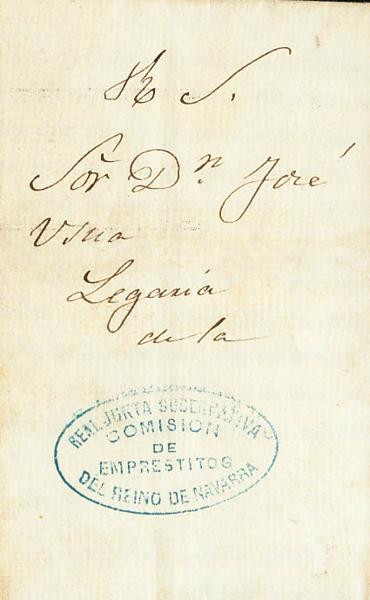 R. S.
Sõr Dⁿ. José
Usua
Legaria
de la
REAL JUNTA GUBERNATIVA
COMISION
DE
EMPRESTITOS
DEL REINO DE NAVARRA